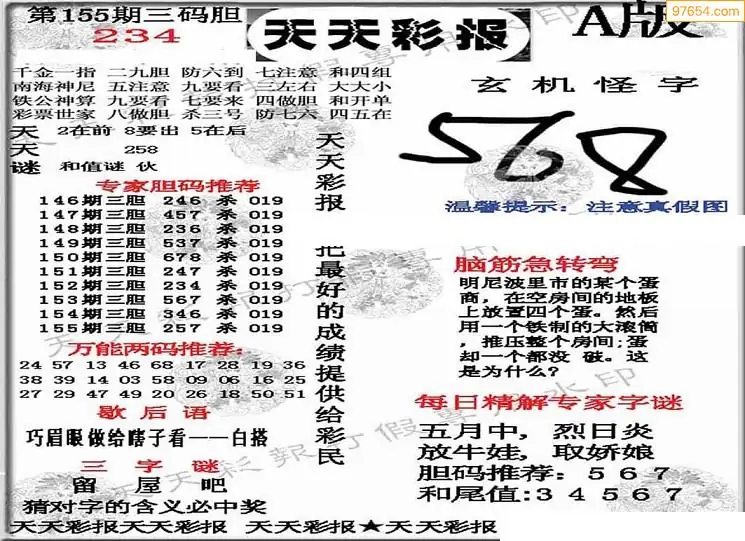 第155期三码胆
234
天天彩报
A版
97654.com
千金一指 二九胆 防六到 七注意 和四组
南海神尼 五注意 九要看 三左右 大大小
铁公神算 九要看 七要来 四做胆 和开单
彩票世家 八做胆 杀三号 防七六 四五在
天 2在前 8要出 5在后
天 258
谜 和值谜 伙
专家胆码推荐
146期三胆 246 杀 019
147期三胆 457 杀 019
148期三胆 236 杀 019
149期三胆 537 杀 019
150期三胆 678 杀 019
151期三胆 247 杀 019
152期三胆 234 杀 019
153期三胆 567 杀 019
154期三胆 346 杀 019
155期三胆 257 杀 019
万能两码推荐:
24 57 13 46 68 17 28 19 36
38 39 14 03 58 09 06 16 25
27 29 47 49 20 26 18 50 51
歇后语
巧眉眼做给瞎子看——白搭
三字谜
留屋吧
猜对字的含义必中奖
天天彩报
把最好的成绩提供给彩民
玄机怪字
568
温馨提示: 注意真假图
脑筋急转弯
明尼波里市的某个蛋
商，在空房间的地板
上放置四个蛋。然后
用一个铁制的大滚筒
，推压整个房间;蛋
却一个都没 破。这
是为什么?
每日精解专家字谜
五月中，烈日炎
放牛娃，取娇娘
胆码推荐: 567
和尾值:34567
天天彩报天天彩报 天天彩报★天天彩报